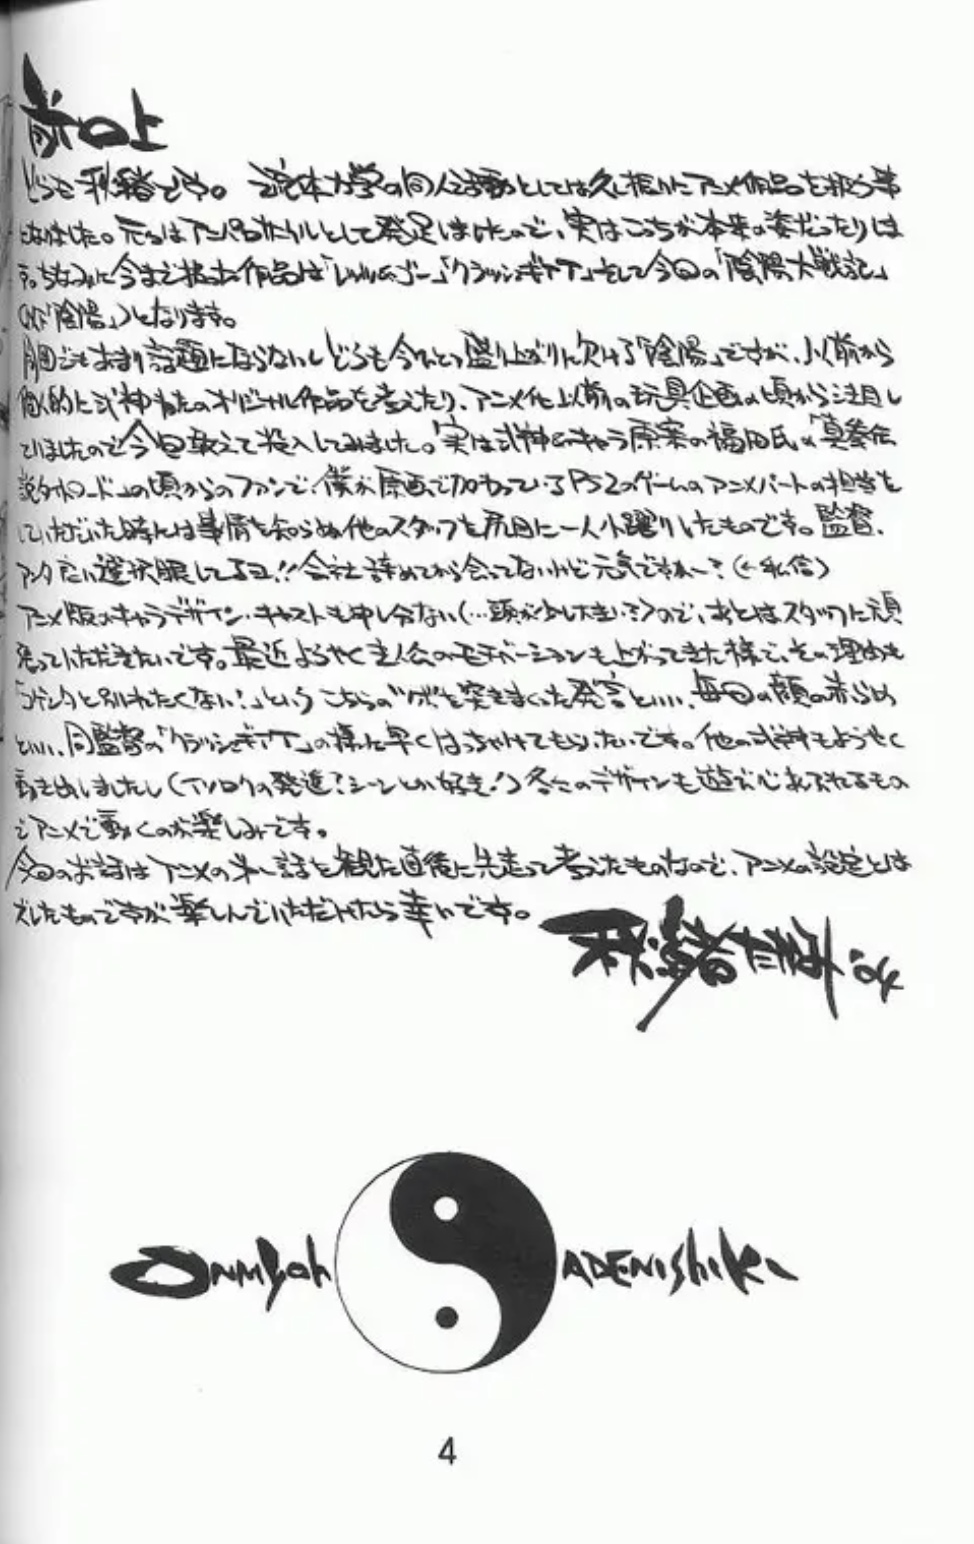 前口上
どうも秋緒です。 の同人活動としては久し振りにアニメ作品を扱う事
になりました。元々はアニパロサークルとして発足しましたので、実はこっちが本来の姿だったりしま
す。ちなみに今まで扱った作品は「レッツ&ゴー」「クラッシュギアT」そして今回の「陰陽大戦記」
(以下「陰陽」)となります。
あまり話題にならないしどうも今ひとつ盛り上がりに欠ける「陰陽」ですが、以前から
個人的に式神ねたのオリジナル作品を考えたり、アニメ化以前の玩具企画の頃から注目し
ていましたので今回敢えて投入してみました。実は式神のキャラ原案の福田氏は「真奏伝
説タイトロード」の頃からのファンで、僕が原画で加わっているPS2のゲームのアニメパートの担当を
していただいた時には事情を知らぬ他のスタッフを尻目に一人小躍りしたものです。監督、
アンタいい選択眼してるヨ!!会社辞めてから会ってないけど元気ですかー?(←私信)
アニメ版のキャラデザイン・キャストも申し分ない(…頭が少し大きい?)ので、あとはスタッフに頑
張っていただきたいです。最近ようやく主人公のモチベーションも上がってきた様で、その理由も
「コゲンタと別れたくない!」というこちらのツボを突きまくった発言といい、毎回の顔の赤らめ
といい、同監督の「クラッシュギアT」の様に早くはっちゃけてもらいたいです。他の式神もようやく
動き出しましたし(イソロクの発進?シーンとか好き!)各々のデザインも遊び心あふれるもの
でアニメで動くのが楽しみです。
今回のお話はアニメの 話を観た直後に先走って考えたものなので、アニメの設定とは
ズレたものですが楽しんでいただけたら幸いです。
'04
ONMYOH ADENISHIKI
4